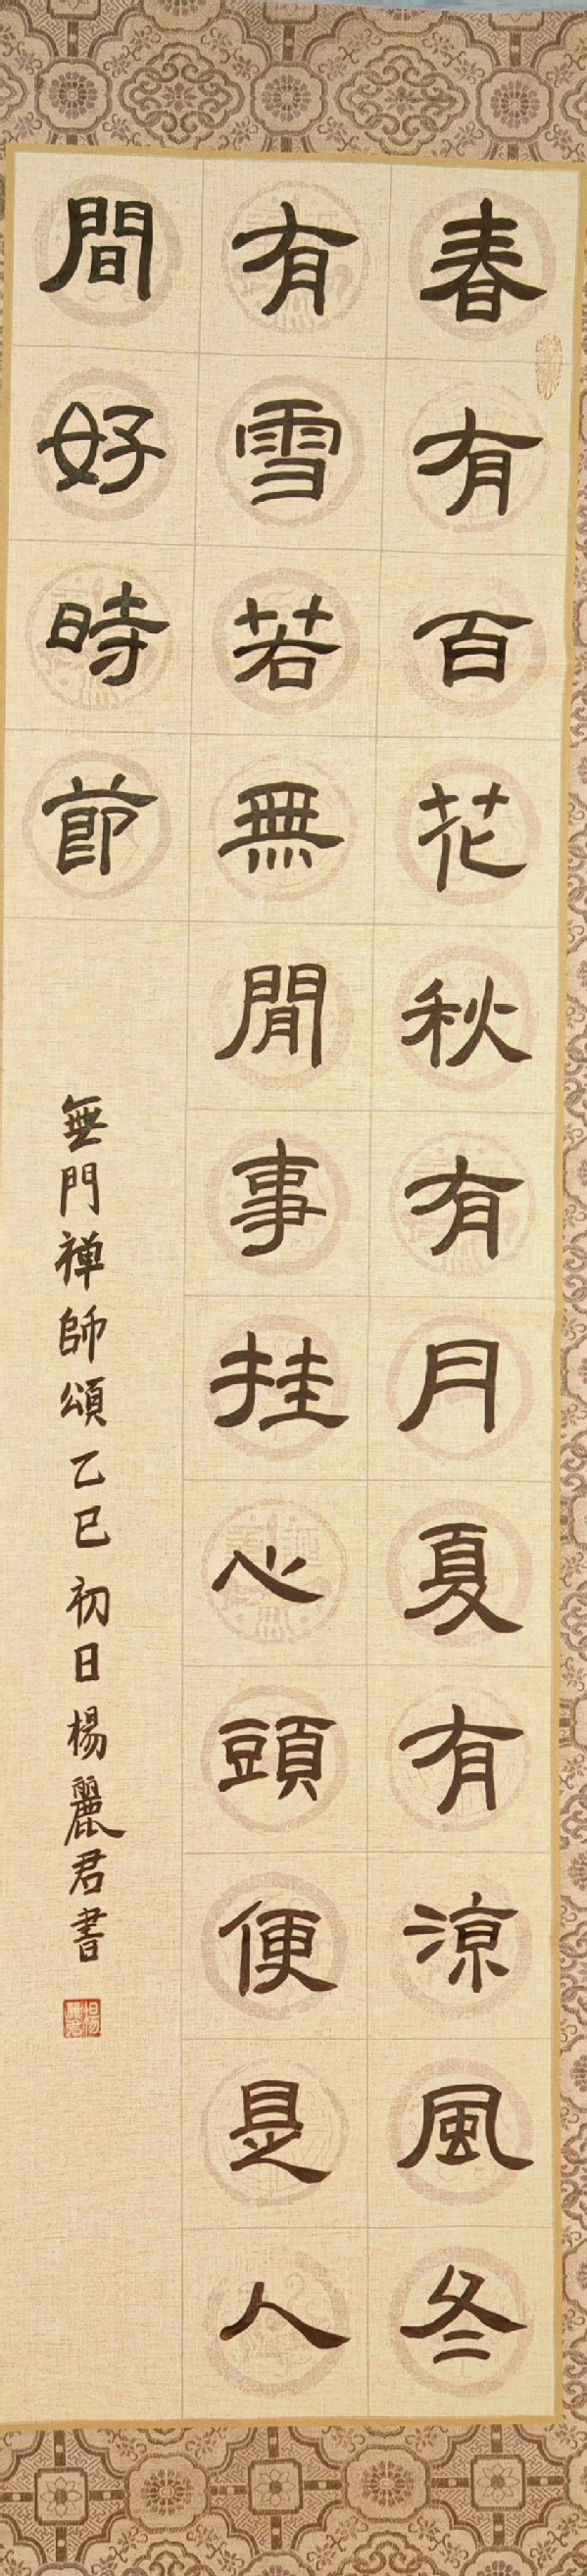 春有百花秋有月夏有涼風冬
有雪若無閒事挂心頭便是人
間好時節
無門禅師頌乙巳初日楊麗君書